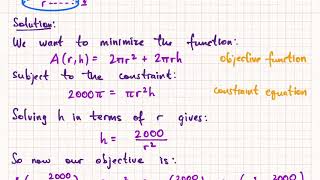 r
Solution:
We want to minimize the function:
A(r,h) = 2πr² + 2πrh objective function
Subject to the constraint:
2000π = πr²h constraint equation
Solving h in terms of r gives:
h = 2000/r²
So now our objective is: